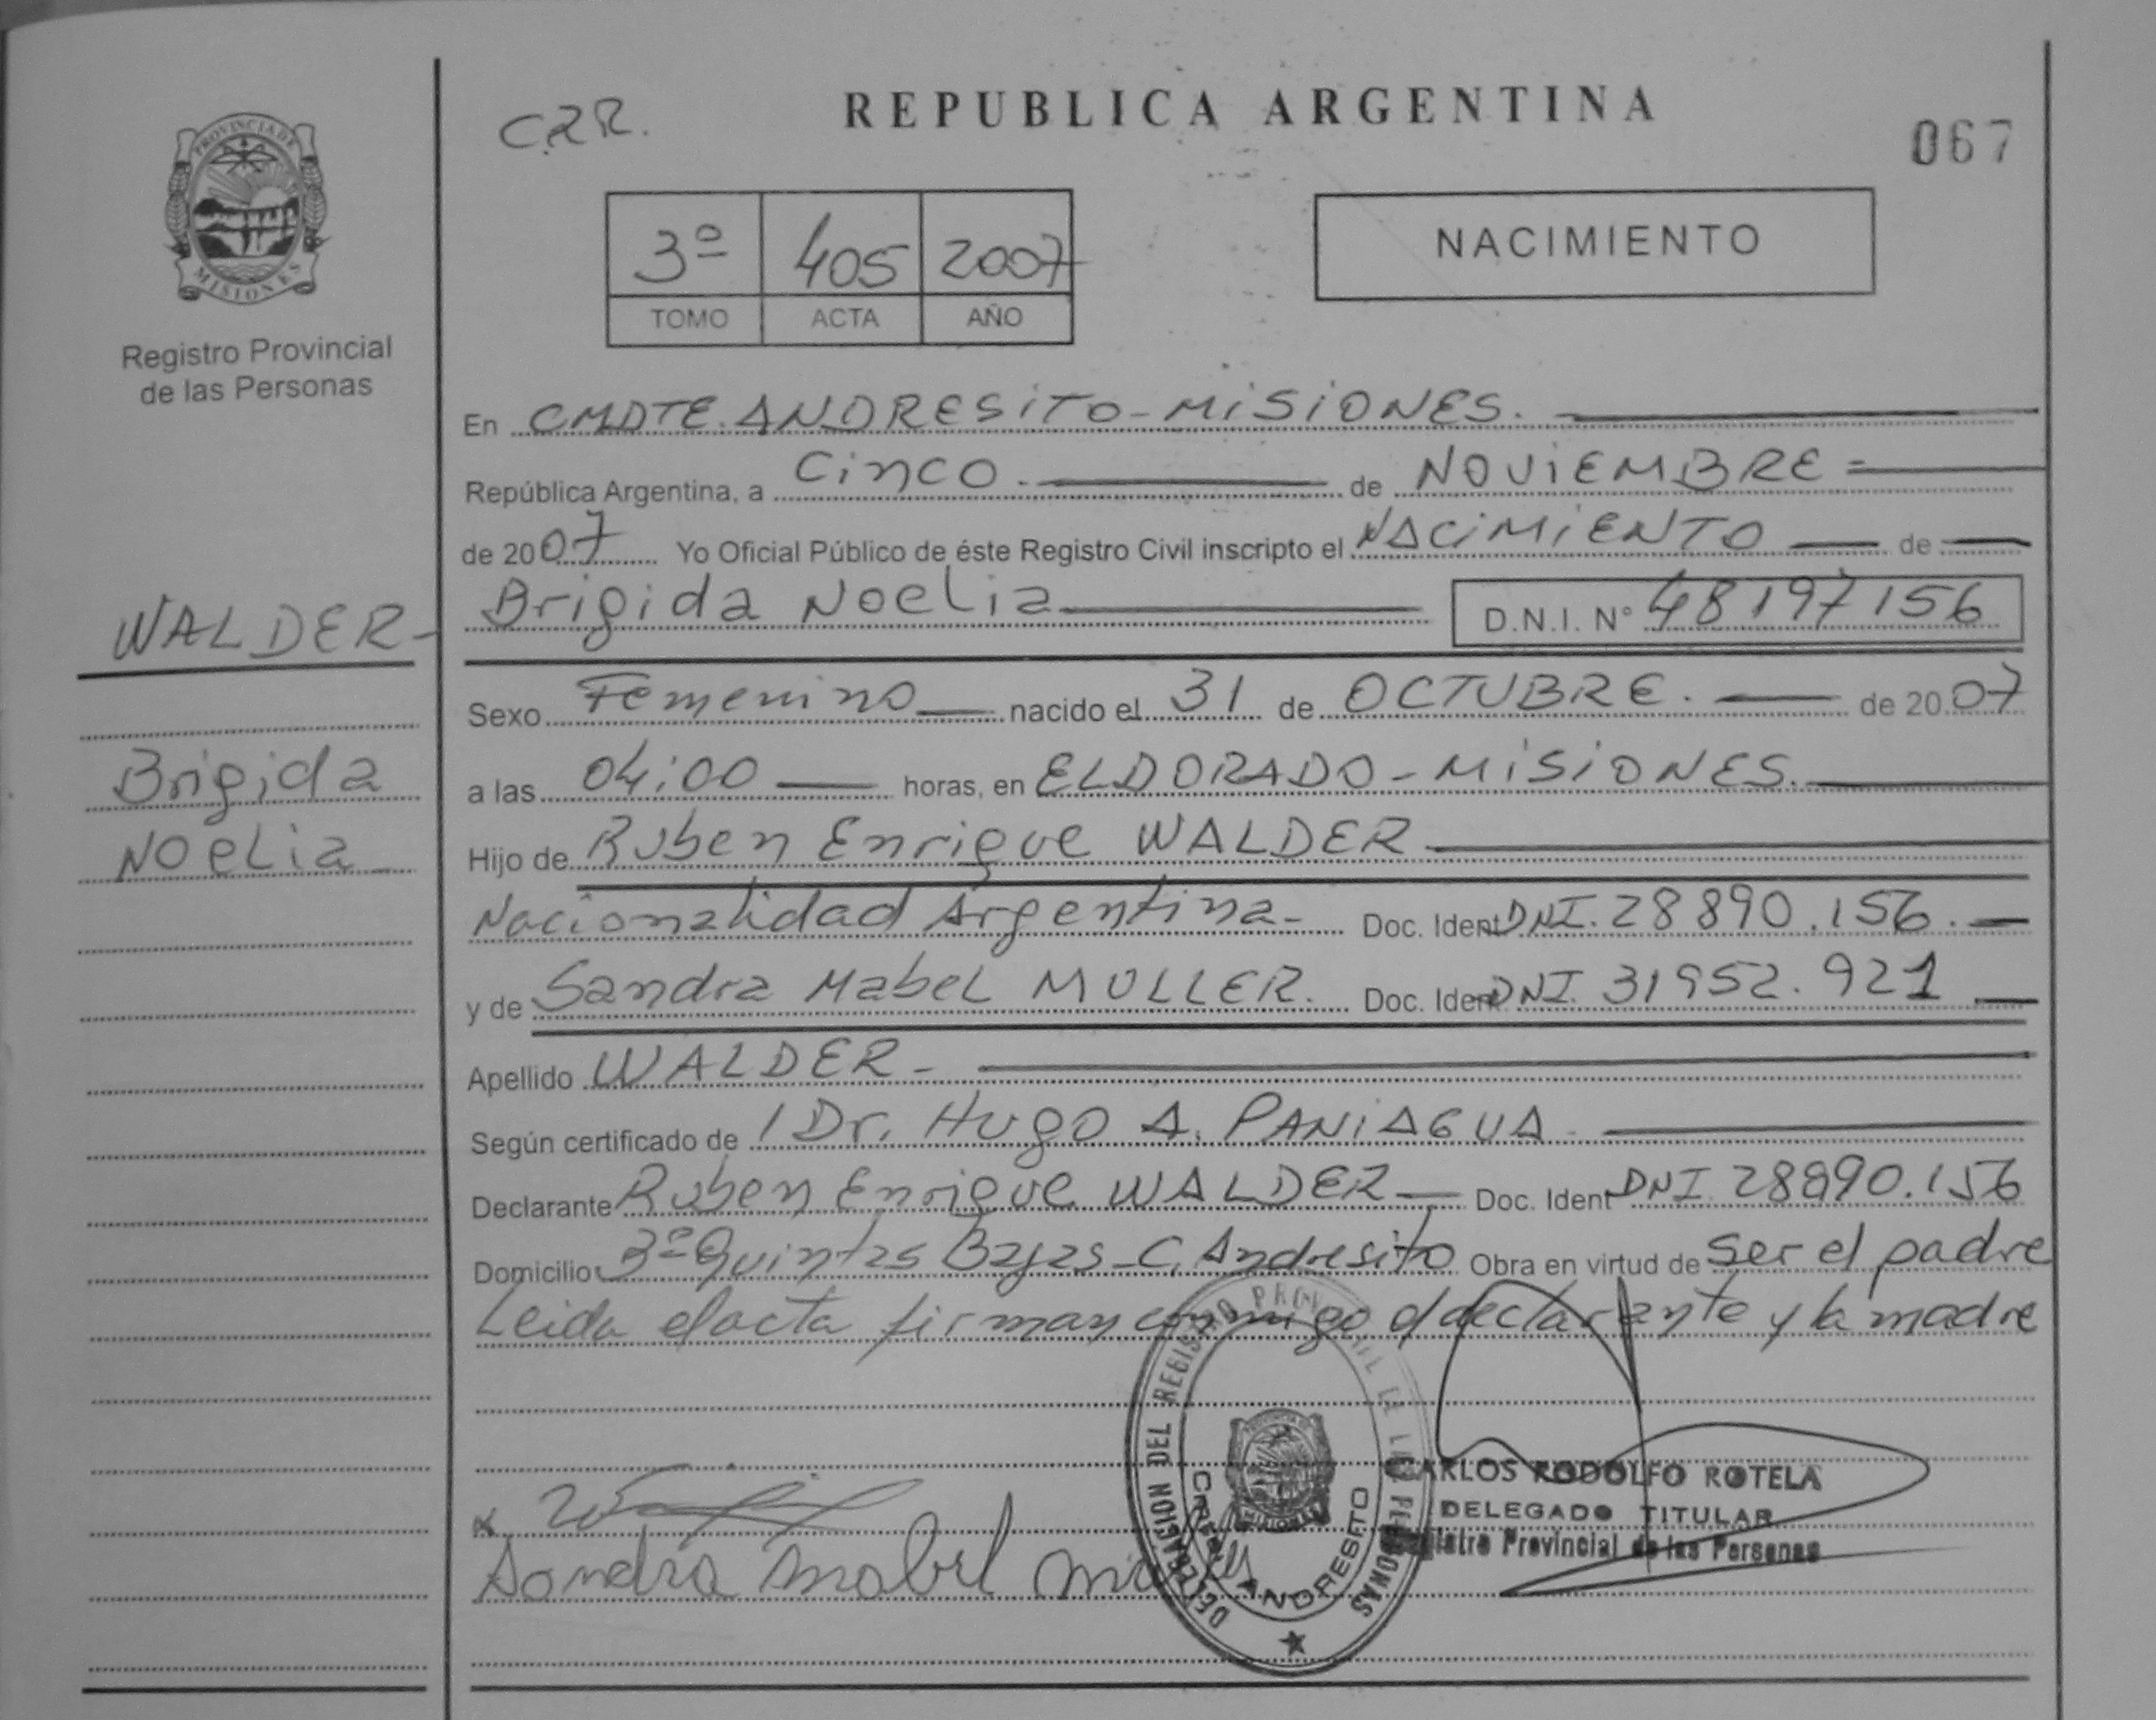 C.R.R.
REPUBLICA ARGENTINA
067
PROVINCIA DE
MISIONES
Registro Provincial
de las Personas
3º 405 2007
TOMO ACTA AÑO
NACIMIENTO
En CMDTE. ANDRESITO - MISIONES.
República Argentina, a Cinco. de NOVIEMBRE =
de 2007 Yo Oficial Público de éste Registro Civil inscripto el NACIMIENTO de
Brigida Noelia D.N.I. Nº 48197156
WALDER -
Brigida
Noelia
Sexo Femenino nacido el 31 de OCTUBRE. de 2007
a las 04:00 horas, en ELDORADO - MISIONES.
Hijo de Ruben Enrique WALDER
Nacionalidad Argentina - Doc. Ident DNI. 28890.156.
y de Sandra Mabel MULLER. Doc. Ident DNI. 31952.921
Apellido WALDER -
Según certificado de / Dr. Hugo A. PANIAGUA
Declarante Ruben Enrique WALDER Doc. Ident DNI 28890.156
Domicilio 3º Quintas Bajas - C. Andresito Obra en virtud de Ser el padre
Leida el acta firman conmigo el declarante y la madre
Sandra Mabel
DELEGACION DEL REGISTRO PROVINCIAL DE LAS PERSONAS
ANDRESITO
CARLOS RODOLFO ROTELA
DELEGADO TITULAR
Registro Provincial de las Personas